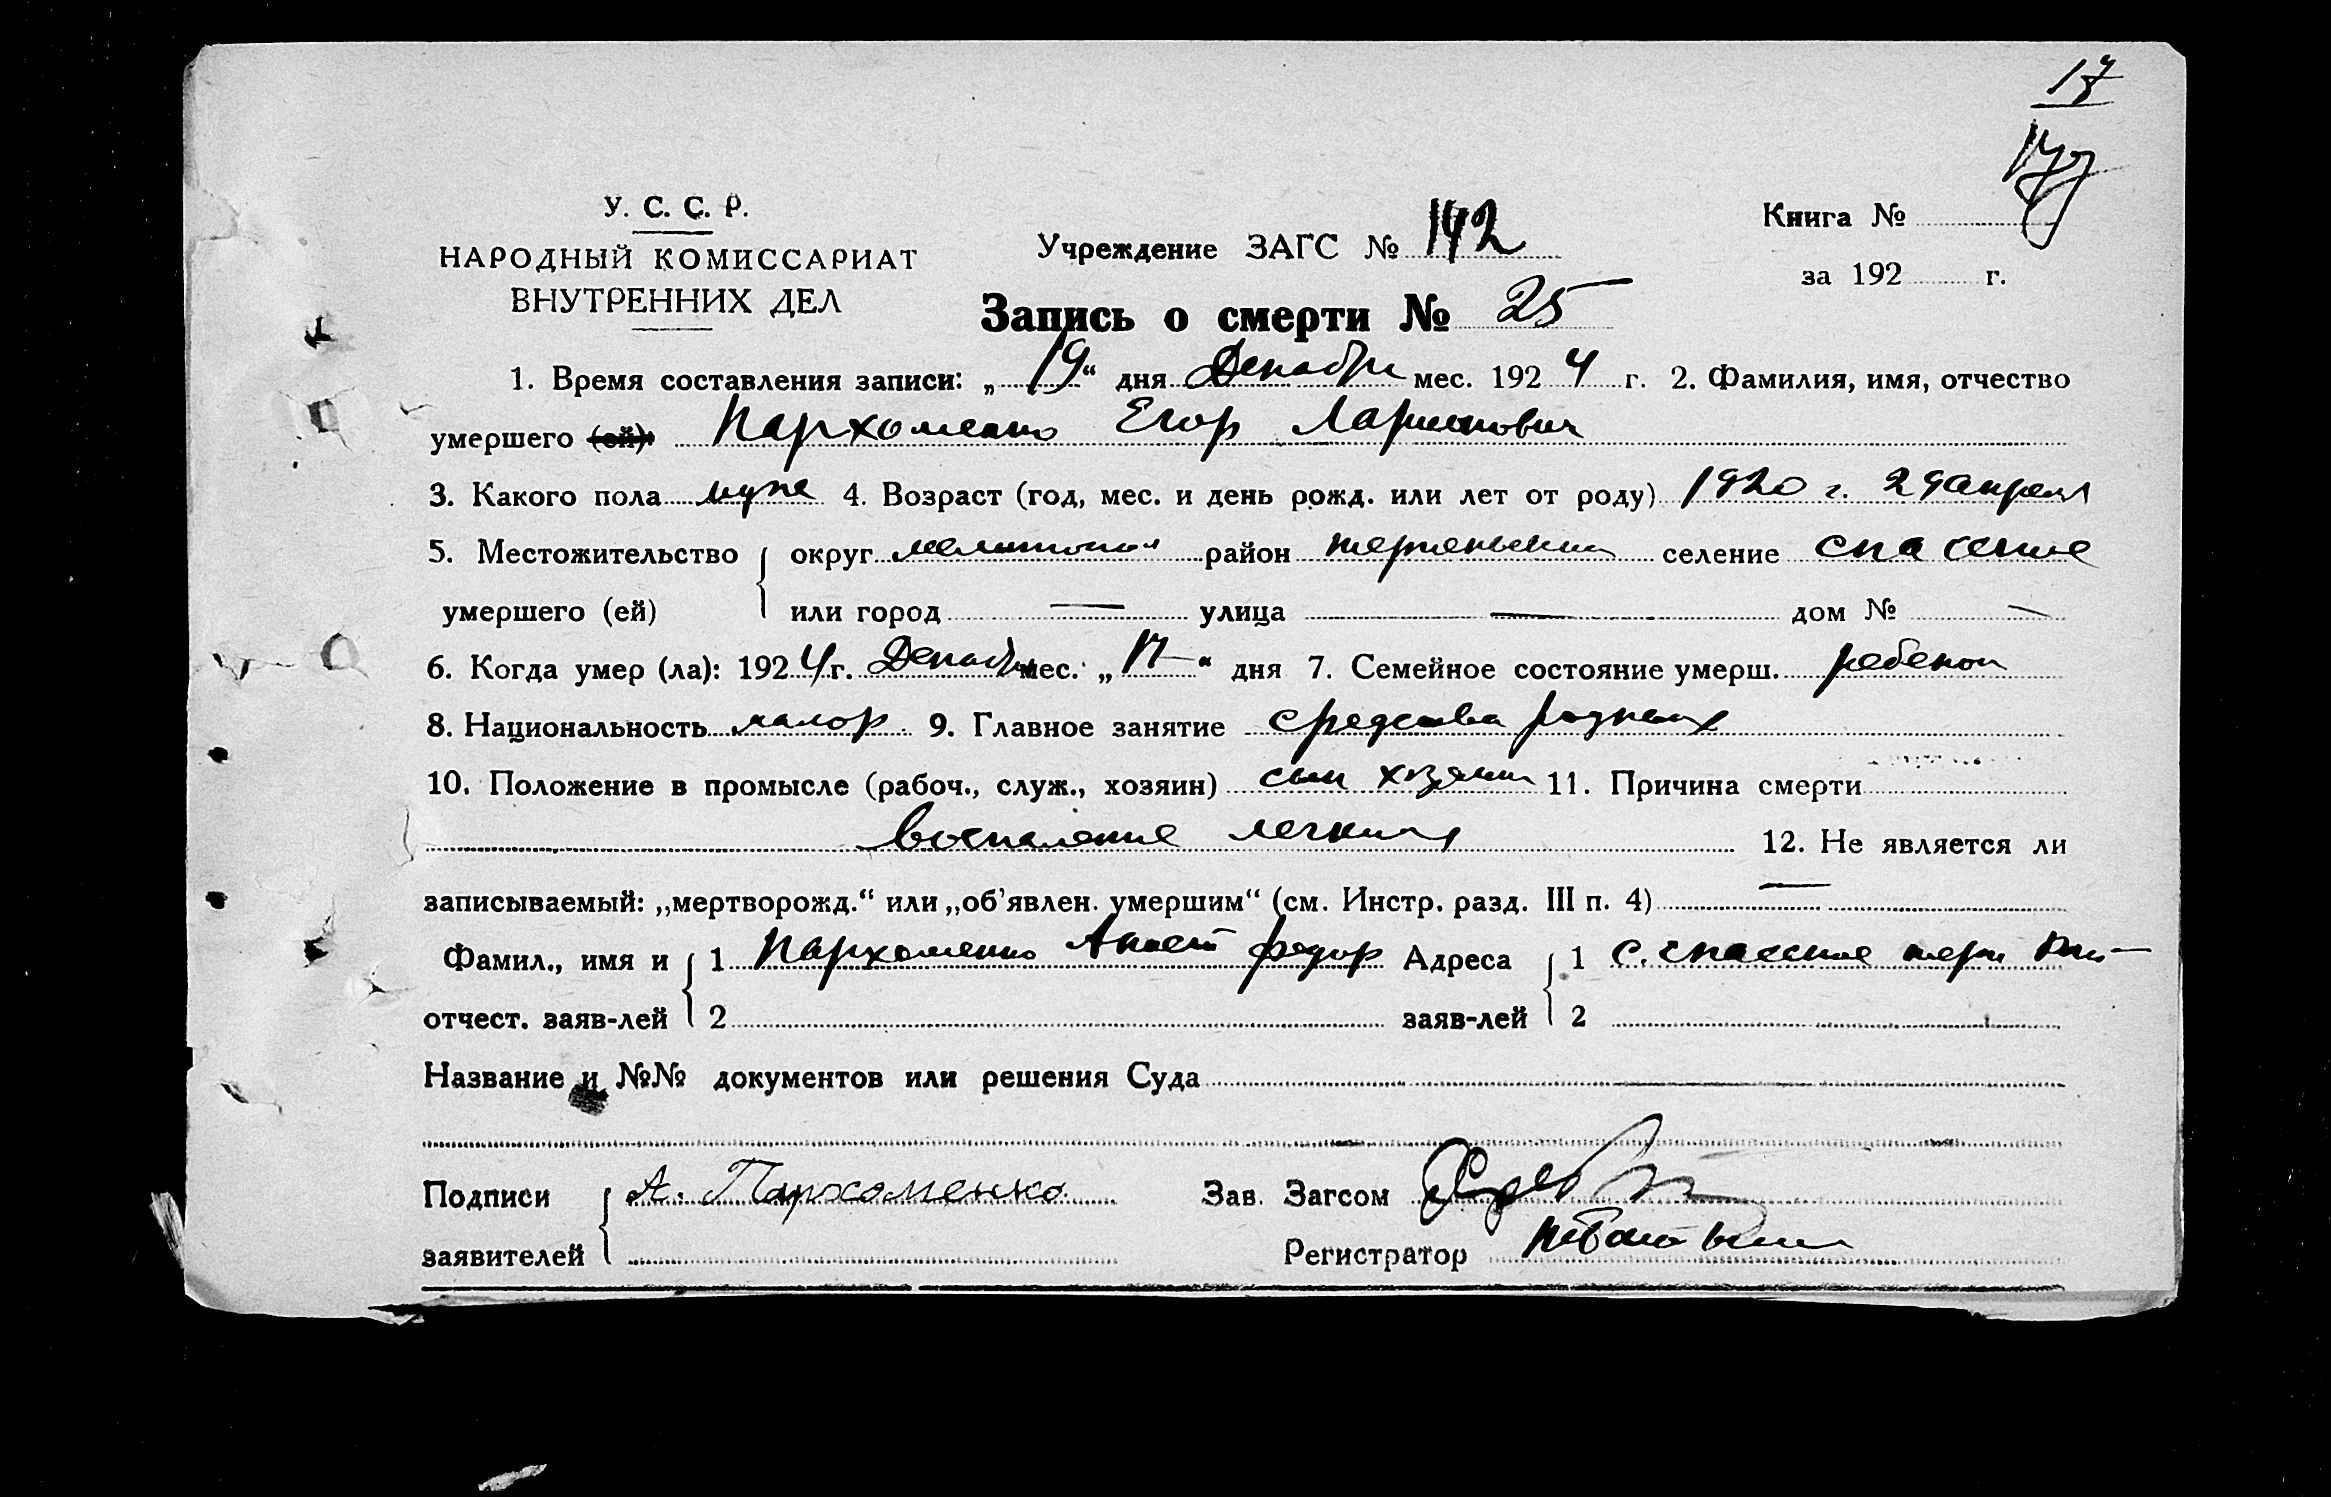 17
У. С. С. Р.
НАРОДНЫЙ КОМИССАРИАТ
ВНУТРЕННИХ ДЕЛ
Учреждение ЗАГС № 142
Книга №
за 192 г.
Запись о смерти № 25
1. Время составления записи: „19“ дня Декабря мес. 1924 г. 2. Фамилия, имя, отчество
умершего (ей): Пархоменко Егор Ларионович
3. Какого пола муж 4. Возраст (год, мес. и день рожд. или лет от роду) 1920 г. 29 апреля
5. Местожительство округ район селение Спасение
умершего (ей) или город — улица — дом № —
6. Когда умер (ла): 1924 г. Декабря мес. „17“ дня 7. Семейное состояние умерш. ребенок
8. Национальность малор 9. Главное занятие средства родных
10. Положение в промысле (рабоч., служ., хозяин) сын хозяина 11. Причина смерти
воспаление легких 12. Не является ли
записываемый: „мертворожд.“ или „об'явлен. умершим“ (см. Инстр. разд. III п. 4) —
Фамил., имя и 1 Пархоменко Федор Адреса 1 с.
отчест. заяв-лей 2 заяв-лей 2
Название и №№ документов или решения Суда
Подписи А. Пархоменко Зав. Загсом
заявителей Регистратор